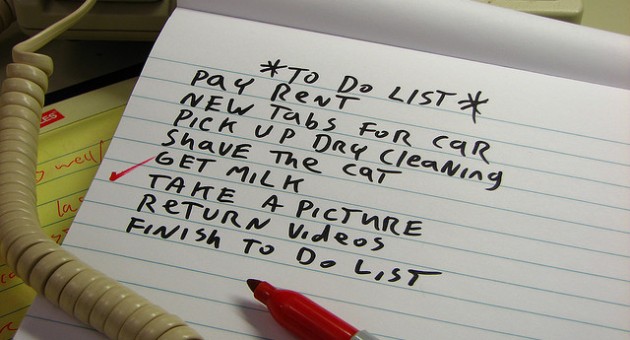 *TO DO LIST*
PAY RENT
NEW TABS FOR CAR
PICK UP DRY CLEANING
SHAVE THE CAT
GET MILK
TAKE A PICTURE
RETURN VIDEOS
FINISH TO DO LIST
well/